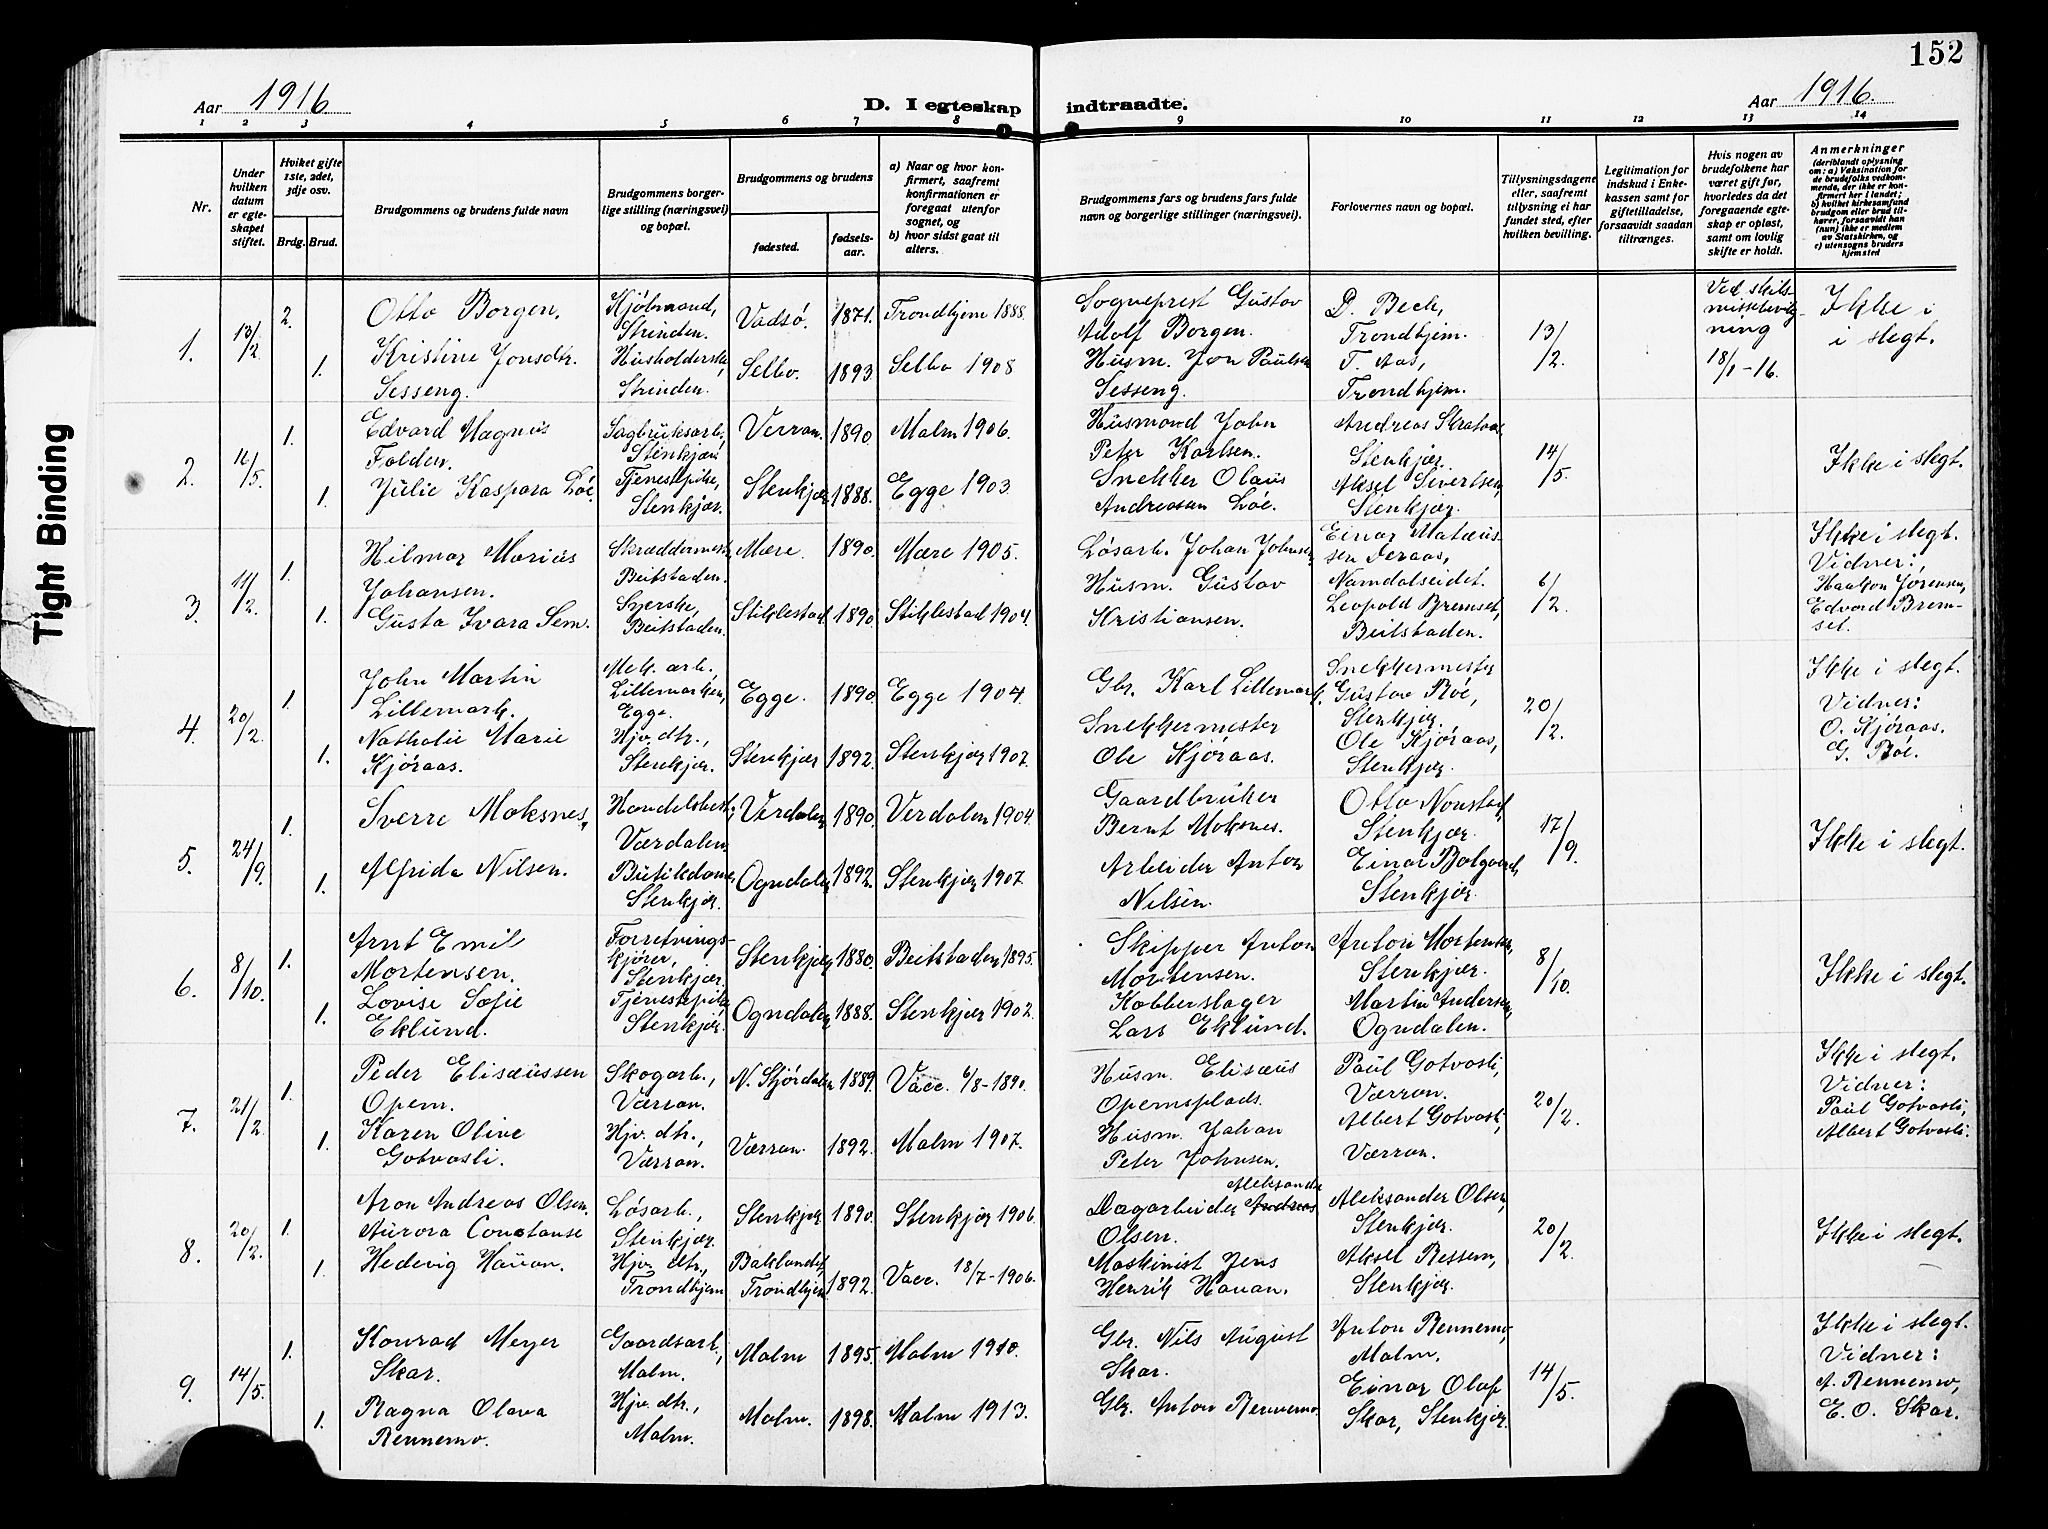 152
Aar 1916
D. I egteskap indtraadte.
Aar 1916.
1 2 3 4 5 6 7 8 9 10 11 12 13 14
Nr.
Under hvilken datum er egteskapet stiftet.
Hviket gifte 1ste, 2det, 3dje osv.
Brdg. Brud.
Brudgommens og brudens fulde navn
Brudgommens borgerlige stilling (næringsvei) og bopæl.
Brudgommens og brudens
fødested.
fødselsaar.
a) Naar og hvor konfirmert, saafremt konfirmationen er foregaat utenfor sognet, og
b) hvor sidst gaat til alters.
Brudgommens fars og brudens fars fulde navn og borgerlige stillinger (næringsvei).
Forlovernes navn og bopæl.
Tillysningsdagene eller, saafremt tillysning ei har fundet sted, efter hvilken bevilling.
Legitimation for indskud i Enkekassen samt for giftetilladelse, forsaavidt saadan tiltrænges.
Hvis nogen av brudefolkene har været gift før, hvorledes da det foregaaende egteskap er opløst, samt om lovlig skifte er holdt.
Anmerkninger
(deriblandt oplysning om: a) Vaksination for de brudefolks vedkommende, der ikke er konfirmert her i landet; b) hvilket kirkesamfund brudgom eller brud tilhører, forsaavidt han (hun) ikke er medlem av Statskirken, og c) utensogns bruders hjemsted
1. 13/2 2. Otto Borgen. Kjøbmand, Strinden. Vadsø. 1871. Trondhjem 1888. Sogneprest Gustav Adolf Borgen. D. Bech, Trondhjem. 13/2 Ved skilsmissebevilgning 18/1-16. Ikke i i slegt.
1. Kristine Jonsdtr. Sesseng. Husholderske, Strinden. Selbo. 1893 Selbo 1908 Husm. Jon Paulsen Sesseng. T. Aas, Trondhjem.
2. 14/5. 1. Edvard Magnus Folden. Sagbruksarb., Stenkjær Verran. 1890 Malm 1906. Husmand John Peter Karlsen. Andreas Stenkjær. 14/5 Ikke i slegt.
1. Julie Kaspara Løe. Tjenestepike, Stenkjær. Stenkjær 1888. Egge 1903. Snekker Olaus Andreassen Løe. Aksel Sivertsen, Stenkjær.
3. 11/2. 1. Hilmar Marius Johansen. Skræddermest. Beitstaden. Mære. 1890. Mære 1905. Løsarb. Johan Johnsen Einar Matæussen Namdalseidet. 6/2 Ikke i slegt. Vidner: Haakon Jørensen, Edvard Bremset.
1. Gusta Ivara Sem. Syerske, Beitstaden. Stiklestad 1890 Stiklestad 1904. Husm. Gustav Kristiansen. Leopold Bremset, Beitstaden.
4. 20/2. 1. John Martin Lillemark. Mek. arb. Lillemarken, Egge. Egge. 1890 Egge 1904. Gbr. Karl Lillemark. Snekkermester Gustav Bøe, Stenkjær. 20/2. Ikke i slegt. Vidner: O. Kjøraas. G. Bøe.
1. Nathalie Marie Kjøraas. Hjv. dtr., Stenkjær. Stenkjær 1892. Stenkjær 1907. Snekkermester Ole Kjøraas. Ole Kjøraas, Stenkjær.
5. 24/9. 1. Sverre Moksnes, Handelsbest., Værdalen. Verdalen 1890. Verdalen 1904. Gaardbruker Bernt Moksnes. Otto Stenkjær. 17/9. Ikke i slegt.
1. Alfrida Nilsen. Butikdame, Stenkjær. Ogndalen 1892. Stenkjær 1907. Arbeider Anton Nilsen. Einar Stenkjær.
6. 8/10. 1. Arnt Emil Mortensen. Forretningskjører, Stenkjær. Stenkjær 1880. Beitstaden 1895. Skipper Anton Mortensen. Anton Mortensen, Stenkjær. 8/10. Ikke i slegt.
1. Lovise Sofie Eklund. Tjenestepike, Stenkjær. Ogndalen 1888. Stenkjær 1902. Kobberslager Lars Eklund. Martin Andersen, Ogndalen.
7. 21/2. 1. Peder Elisæussen Opem. Skogarb., Værran. N. Stjørdalen 1889. Vacc. 6/8-1890. Husm. Elisæus Opemsplads. Paul Gotvasli, Værran. 20/2. Ikke i slegt. Vidner: Paul Gotvasli, Albert Gotvasli.
1. Karen Olive Gotvasli. Hjv. dtr., Værran. Værran. 1892. Malm 1907. Husm. Johan Peter Johnsen. Albert Gotvasli, Værran.
8. 20/2. 1. Aron Andreas Olsen. Løsarb., Stenkjær. Stenkjær 1890. Stenkjær 1906. Dagarbeider Andreas Aleksander Olsen. Aleksander Olsen, Stenkjær. 20/2. Ikke i slegt.
1. Aurora Constanse Hedevig Hauan. Hjv. dtr., Trondhjem Baklandet, Trondhjem 1892. Vacc. 18/7-1906. Maskinist Jens Henrik Hauan. Aksel Ressem, Stenkjær.
9. 14/5. 1. Konrad Meyer Skar. Gaardsarb., Malm. Malm 1895. Malm 1910. Gbr. Nils August Skar. Anton Rennemo, Malm. 14/5. Ikke i slegt. Vidner: A. Rennemo, E. O. Skar.
1. Ragna Olava Rennemo. Hjv. dtr., Malm. Malm. 1898. Malm 1913. Gbr. Anton Rennemo. Einar Olaf Skar, Stenkjær.
Tight Binding